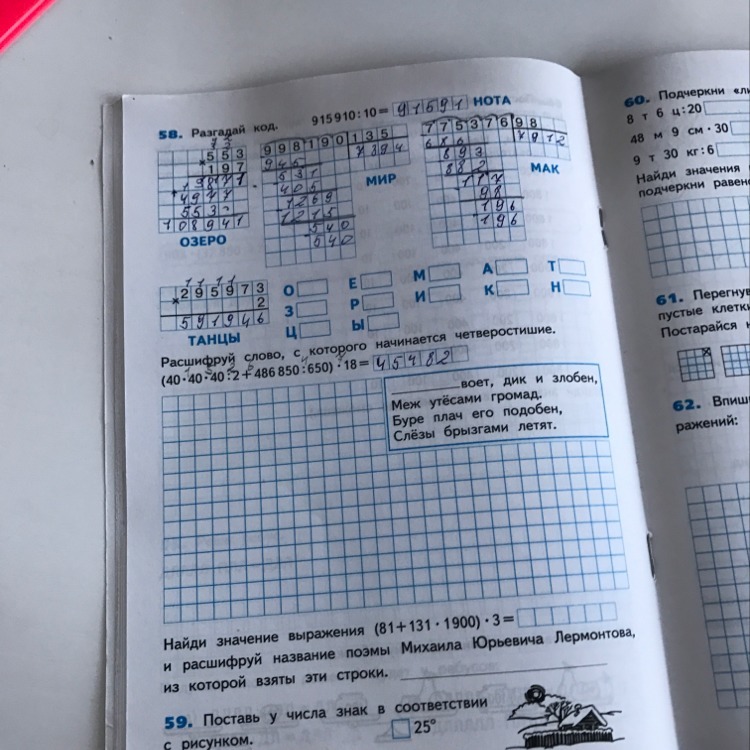 58. Разгадай код.
915 910 : 10 = 91591 НОТА
553
× 197
5530
108941
ОЗЕРО
998190 135
945 7394
531
405
1269
1215
540
540
МИР
775376 98
686 7912
893
882
117
98
196
196
МАК
295973
× 2
591946
ТАНЦЫ
О Е М А Т
З Р И К Н
Ц Ы
Расшифруй слово, с которого начинается четверостишие.
(40 · 40 · 40 : 2 + 486 850 : 650) · 18 = 45482
воет, дик и злобен,
Меж утёсами громад.
Буре плач его подобен,
Слёзы брызгами летят.
Найди значение выражения (81 + 131 · 1900) · 3 =
и расшифруй название поэмы Михаила Юрьевича Лермонтова,
из которой взяты эти строки.
59. Поставь у числа знак в соответствии
с рисунком. 25°
60. Подчеркни «ли
8 т 6 ц : 20
48 м 9 см · 30
9 т 30 кг : 6
Найди значения
подчеркни равен
61. Перегнув
пустые клетки
Постарайся
62. Впиш
ражений: